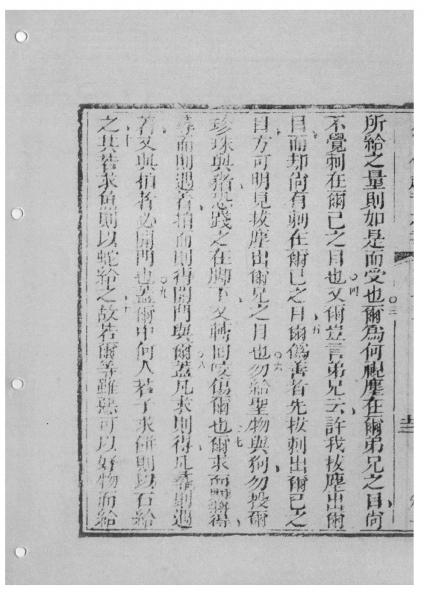 所給之量則如是而受也爾為何視塵在爾弟兄之目尚
不覺刺在爾己之目也又爾豈言弟兄云許我拔塵出爾
目而却尚有刺在爾己之目爾偽善者先拔刺出爾己之
目方可明見拔塵出爾兄之目也勿給聖物與狗勿投爾
珍珠與豬恐踐之在脚下又轉回咬傷爾也爾求而則得
尋而則遇著拍而則得開門與爾蓋凡求則得凡尋則遇
著又與拍者必開門也蓋爾中何人若子求餅則以石給
之其若求魚則以蛇給之故若爾等雖惡可以好物而給